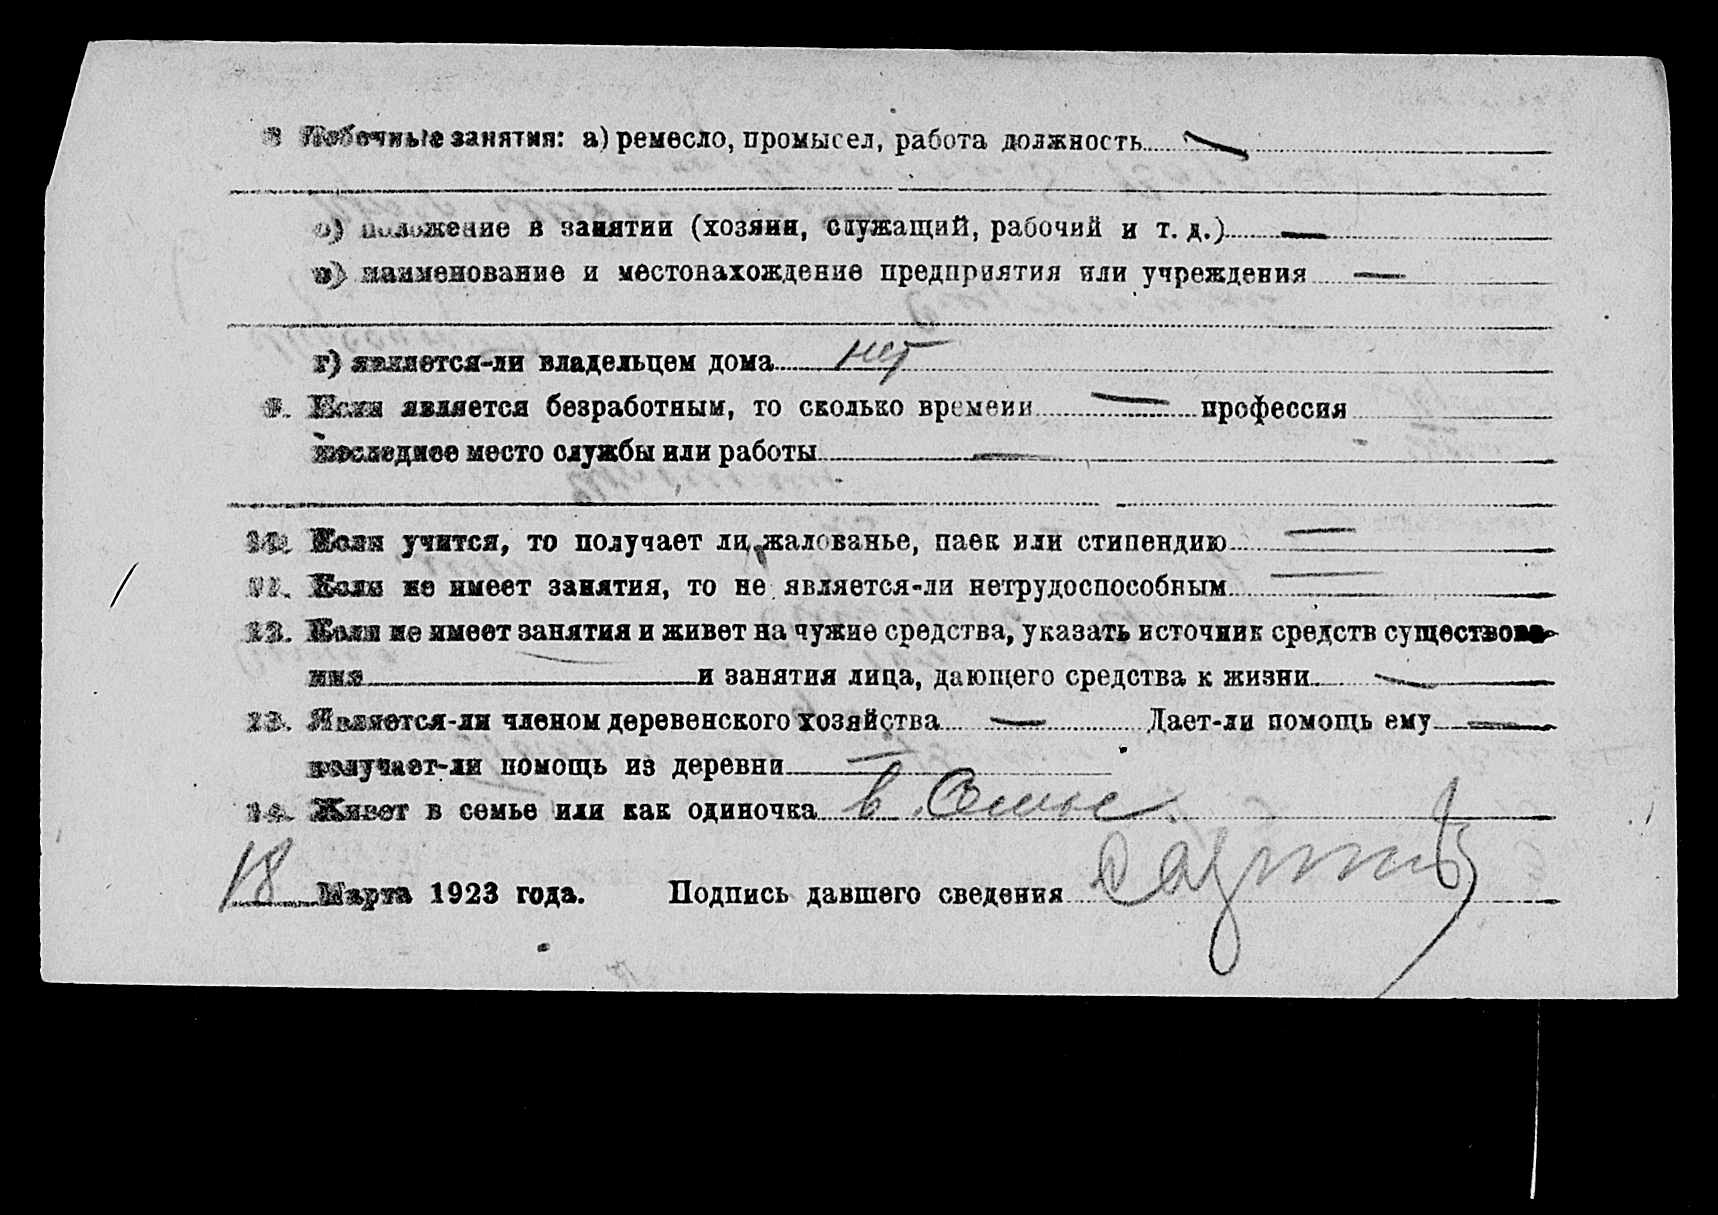 8 Побочные занятия: а) ремесло, промысел, работа должность —
б) положение в занятии (хозяин, служащий, рабочий и т. д.) —
в) наименование и местонахождение предприятия или учреждения —
г) является-ли владельцем дома нет
9. Если является безработным, то сколько времени — профессия
последнее место службы или работы —
10. Если учится, то получает ли жалованье, паек или стипендию —
11. Если не имеет занятия, то не является-ли нетрудоспособным —
12. Если не имеет занятия и живет на чужие средства, указать источник средств существова-
ния — и занятия лица, дающего средства к жизни —
13. Является-ли членом деревенского хозяйства — Дает-ли помощь ему —
получает-ли помощь из деревни —
14. Живет в семье или как одиночка в семье
18 Марта 1923 года. Подпись давшего сведения